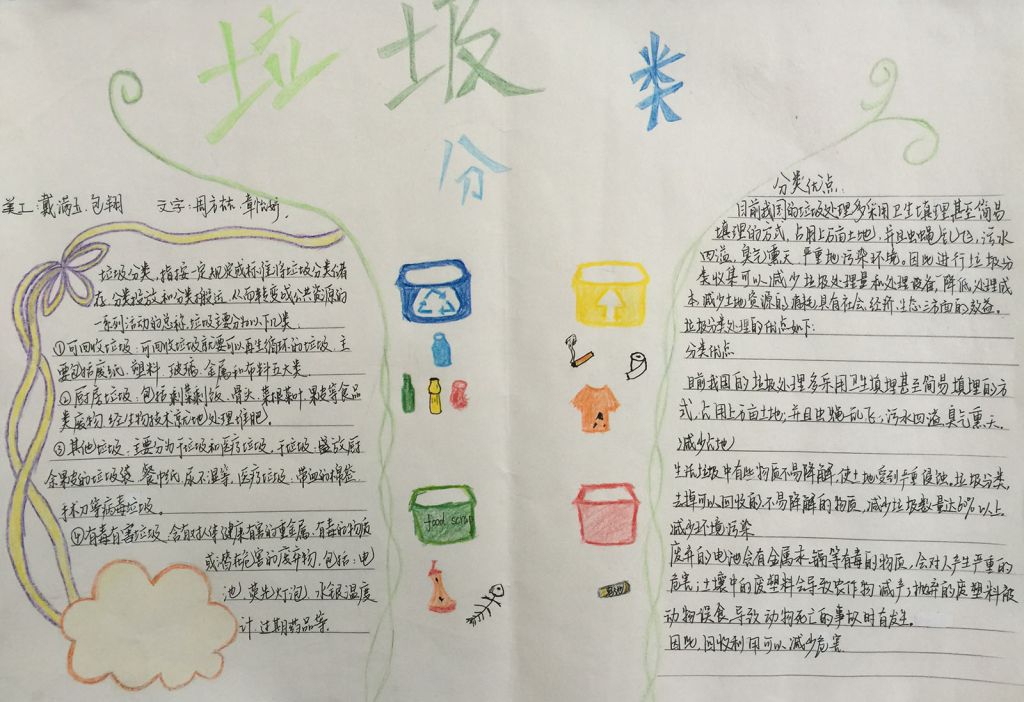 垃圾分类
美工:戴满玉.包翔 文字:周方喆.章怡妍.
垃圾分类,指按一定规定或标准将垃圾分类储
存.分类投放和分类搬运.从而转变成公共资源的
一系列活动的总称.垃圾主要分为以下几类:
①可回收垃圾:可回收垃圾就要可以再生循环的垃圾.主
要包括废纸.塑料.玻璃.金属和布料五大类.
②厨房垃圾:包括剩菜剩饭.骨头.菜根菜叶.果皮等食品
类废物.经生物技术就地处理堆肥.
③其他垃圾.主要分为干垃圾和医疗垃圾,干垃圾:盛放厨
余果皮的垃圾袋.餐巾纸.尿不湿等.医疗垃圾:带血的棉签.
手术刀等病毒垃圾.
④有毒有害垃圾.含有对人体健康有害的重金属.有毒的物质
或潜在危害的废弃物.包括:电
池.荧光灯泡.水银温度
计.过期药品等.
food scrap
分类优点:
目前我国的垃圾处理多采用卫生填埋甚至简易
填埋的方式,占用上万亩土地,并且虫蝇乱飞,污水
四溢,臭气熏天,严重地污染环境。因此进行垃圾分
类收集可以减少垃圾处理量和处理设备,降低处理成
本.减少土地资源的消耗具有社会.经济.生态三方面的效益。
垃圾分类处理的优点如下:
分类优点
目前我国的垃圾处理多采用卫生填埋甚至简易填埋的方
式,占用上万亩土地,并且虫蝇乱飞,污水四溢.臭气熏天.
减少占地
生活垃圾中有些物质不易降解,使土地受到严重侵蚀.垃圾分类,
去掉可以回收的不易降解的物质,减少垃圾数量达60%以上.
减少环境污染
废弃的电池含有金属汞.镉等有毒的物质,会对人产生严重的
危害;土壤中的废塑料会导致农作物减产;抛弃的废塑料被
动物误食,导致动物死亡的事故时有发生。
因此,回收利用可以减少危害.